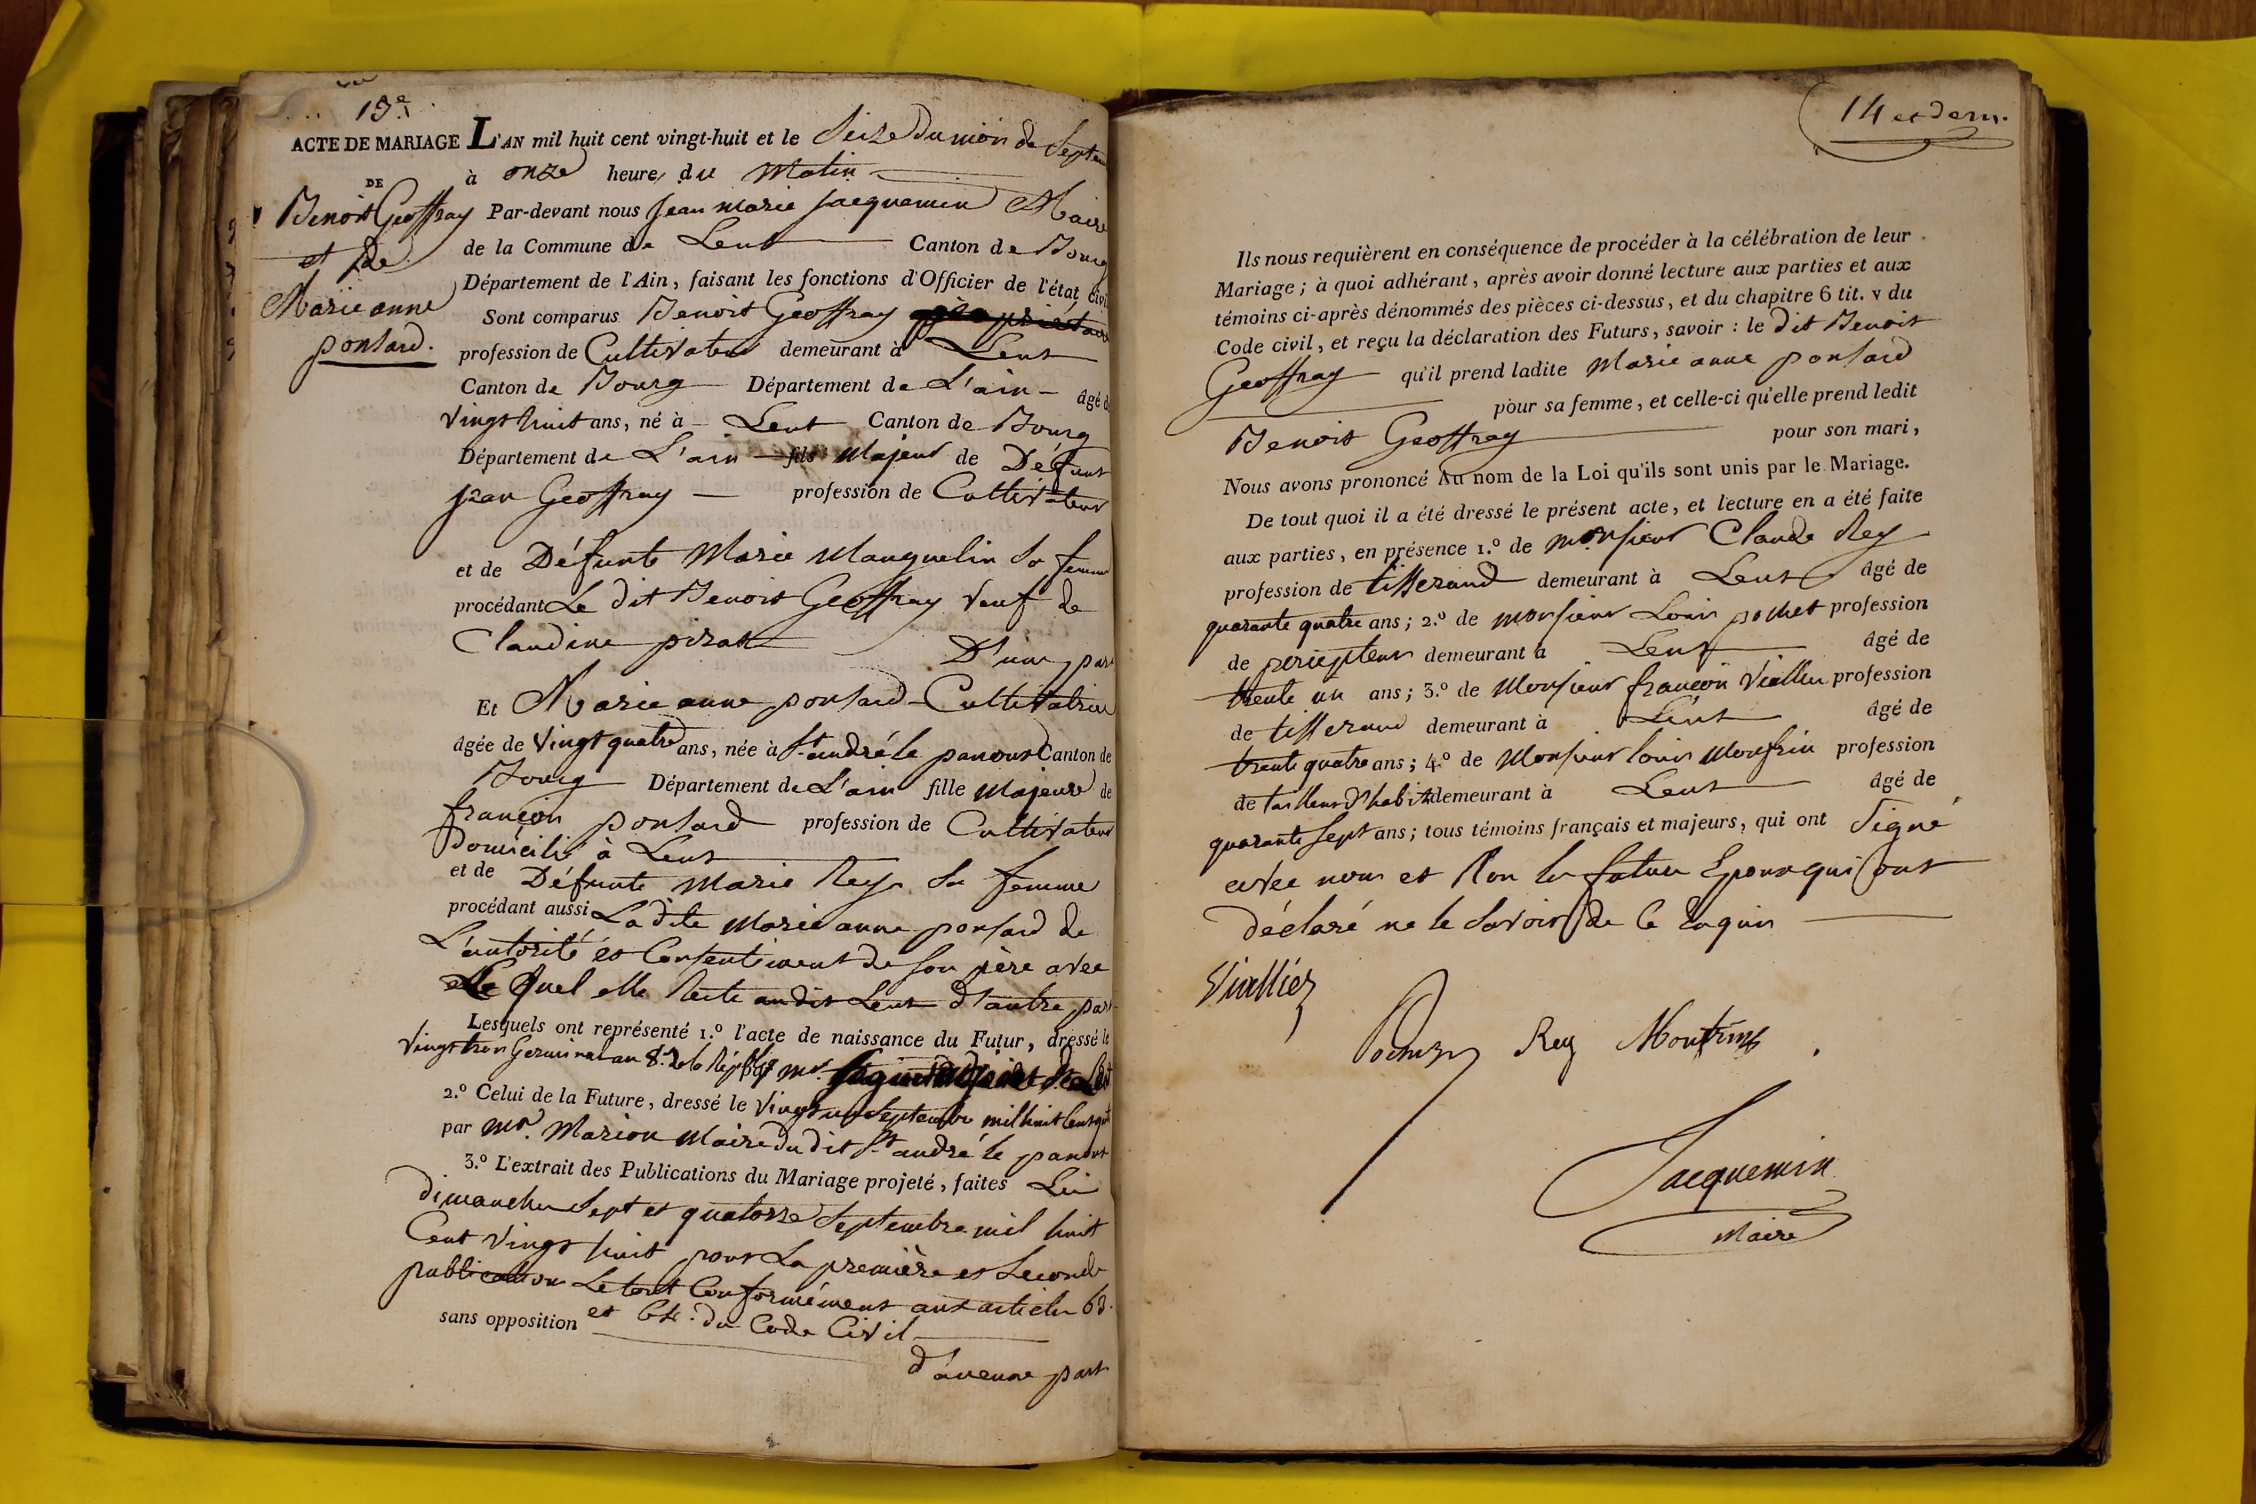 13.e
ACTE DE MARIAGE
DE
Benoit Geoffray
et De
Marie anne
ponsard.
L'AN mil huit cent vingt-huit et le Seize du mois de Septem
à onze heure du Matin
Par-devant nous Jean Marie Jacquemin Maire
de la Commune de Lent Canton de Bourg
Département de l'Ain, faisant les fonctions d'Officier de l'état civil
Sont comparus Benoit Geoffray propriétaire
profession de Cultivateur demeurant à Lent
Canton de Bourg Département de L'ain âgé de
Vingt huit ans, né à Lent Canton de Bourg
Département de L'ain fils Majeur de Défunt
Jean Geoffray profession de Cultivateur
et de Défunte Marie Mauguelin Sa femme
procédant Le dit Benoit Geoffray Veuf de
Claudine pirat D'une part
Et Marie anne ponsard Cultivatrice
âgée de Vingt quatre ans, née à St. andré le panoux Canton de
Bourg Département de L'ain fille Majeure de
françois ponsard profession de Cultivateur
Domicilié à Lent
et de Défunte Marie Rey Sa femme
procédant aussi Ladite Marie anne ponsard de
L'autorité et Consentement de son père avec
Le quel elle Reste audit Lent d'autre part
Lesquels ont représenté 1.º l'acte de naissance du Futur, dressé le
Vingt trois Germinal an 8. de la Rép. par mr.
2.º Celui de la Future, dressé le Vingt un Septembre mil huit Cent
par mr. Marion Maire du dit St. andré le panoux
3.º L'extrait des Publications du Mariage projeté, faites Les
dimanches Sept et quatorze Septembre mil huit
Cent Vingt huit pour La première et Seconde
publication Le tout Conformément aux articles 63.
sans opposition et 64. du Code Civil
d'aucune part
14 et dern.
Ils nous requièrent en conséquence de procéder à la célébration de leur
Mariage; à quoi adhérant, après avoir donné lecture aux parties et aux
témoins ci-après dénommés des pièces ci-dessus, et du chapitre 6 tit. v du
Code civil, et reçu la déclaration des Futurs, savoir: le dit Benoit
Geoffray qu'il prend ladite Marie anne ponsard
pour sa femme, et celle-ci qu'elle prend ledit
Benoit Geoffray pour son mari,
Nous avons prononcé Au nom de la Loi qu'ils sont unis par le Mariage.
De tout quoi il a été dressé le présent acte, et lecture en a été faite
aux parties, en présence 1.º de monsieur Claude Rey
profession de tisserand demeurant à Lent âgé de
quarante quatre ans; 2.º de monsieur Louis pochet profession
de percepteur demeurant à Lent âgé de
trente un ans; 3.º de Monsieur françois Viallier profession
de tisserand demeurant à Lent âgé de
trente quatre ans; 4.º de Monsieur louis Monfrin profession
de tailleur d'habits demeurant à Lent âgé de
quarante Sept ans; tous témoins français et majeurs, qui ont Signé
avec nous et Non les futurs Epoux qui ont
déclaré ne le Savoir de Ce Requis
Viallier
Pochet Rey Monfrin
Jacquemin
Maire